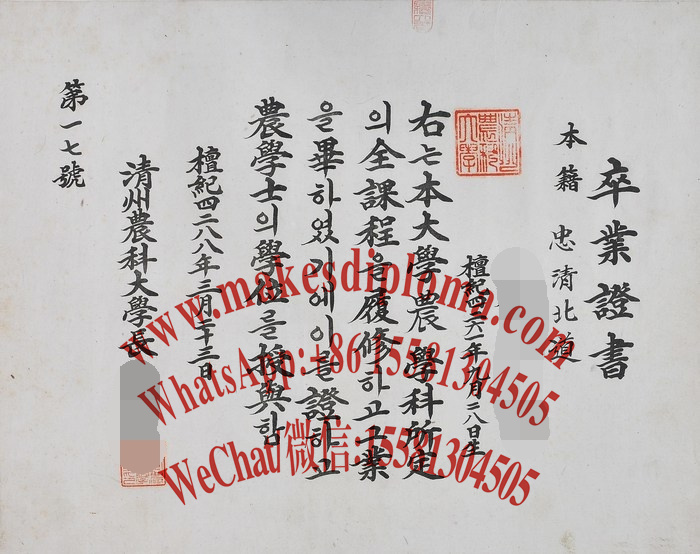 卒業證書
本籍 忠清北道
檀紀四二六一年 月二八日生
右는本大學農 學科所定
의全課程을履修하고그業
을畢하였기에이를證하고
農學士의學位를授與함
檀紀四二八八年三月二十三日
清州農科大學長
第一七號
www.makesdiploma.com
WhatsApp:+86 15531304505
WeChat/微信:15531304505